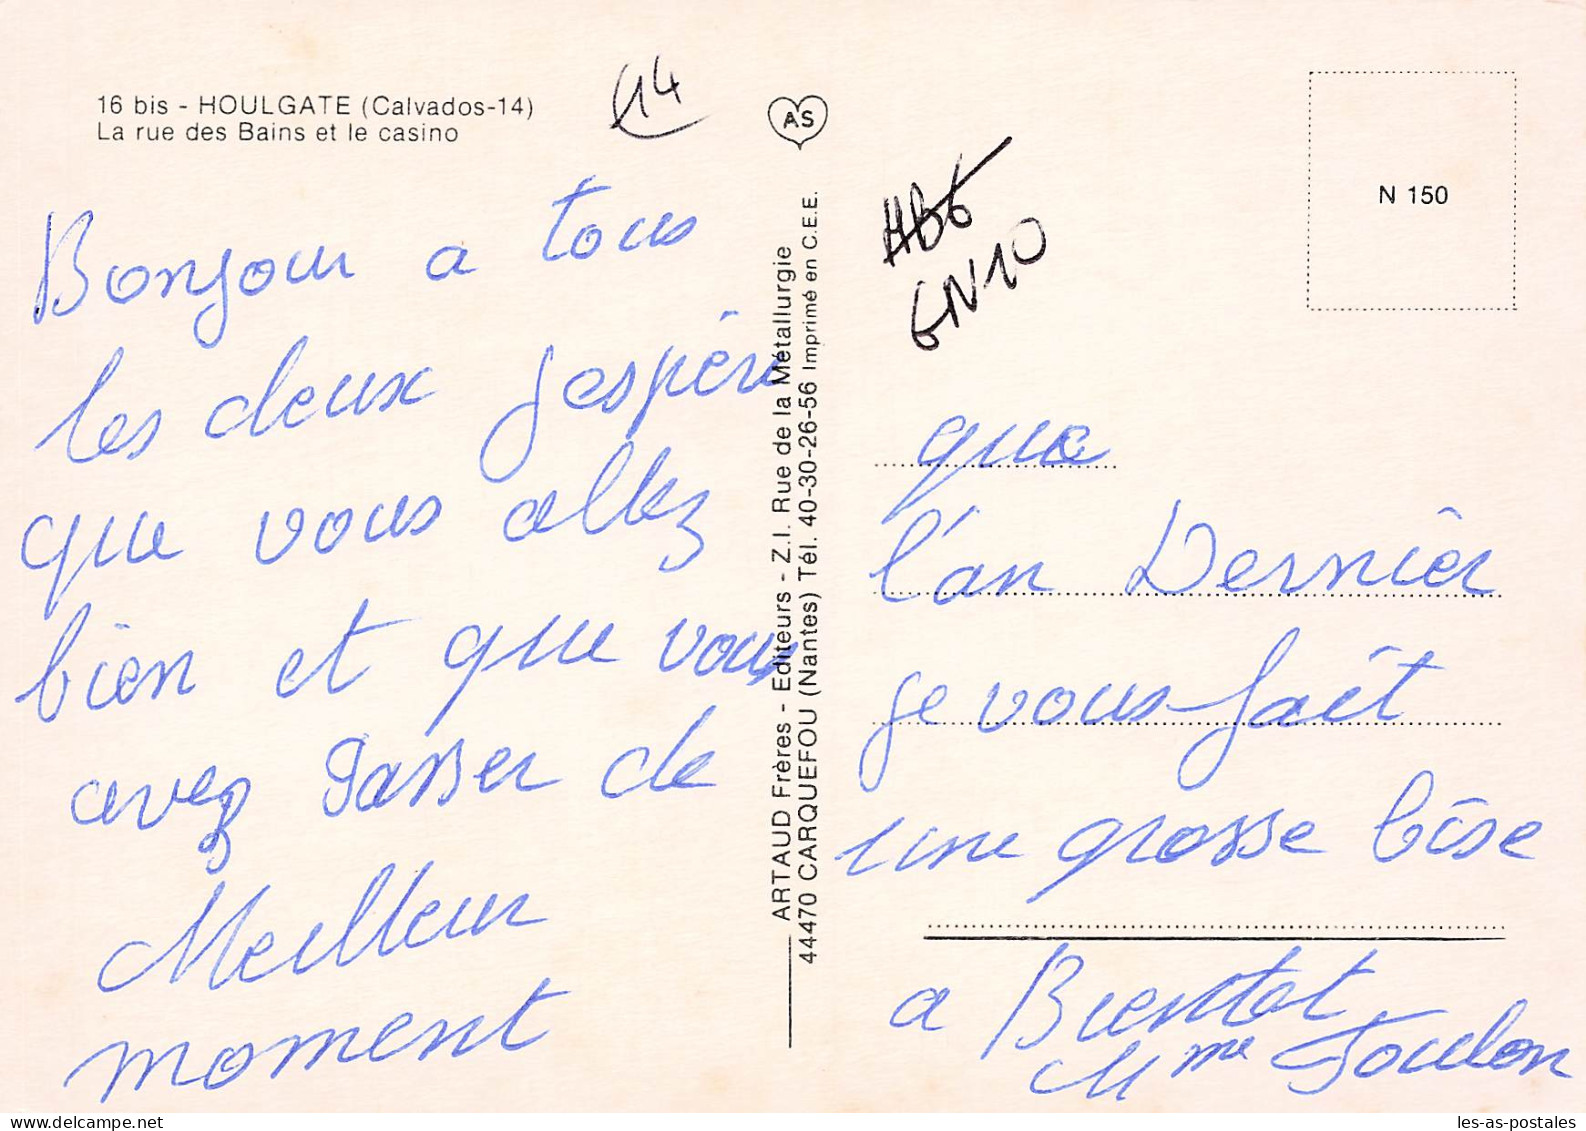 16 bis - HOULGATE (Calvados-14)
La rue des Bains et le casino
14
Bonjour a tous
les deux j'espère
que vous allez
bien et que vous
avez Passer de
Meilleur
moment
ARTAUD Frères - Editeurs - Z.I. Rue de la Métallurgie
44470 CARQUEFOU (Nantes) Tél. 40-30-26-56 Imprimé en C.E.E.
AS
GN10
N 150
que
l'an Dernier
je vous fait
une grosse bise
a Bientot
Mme Toulon
les-as-postales